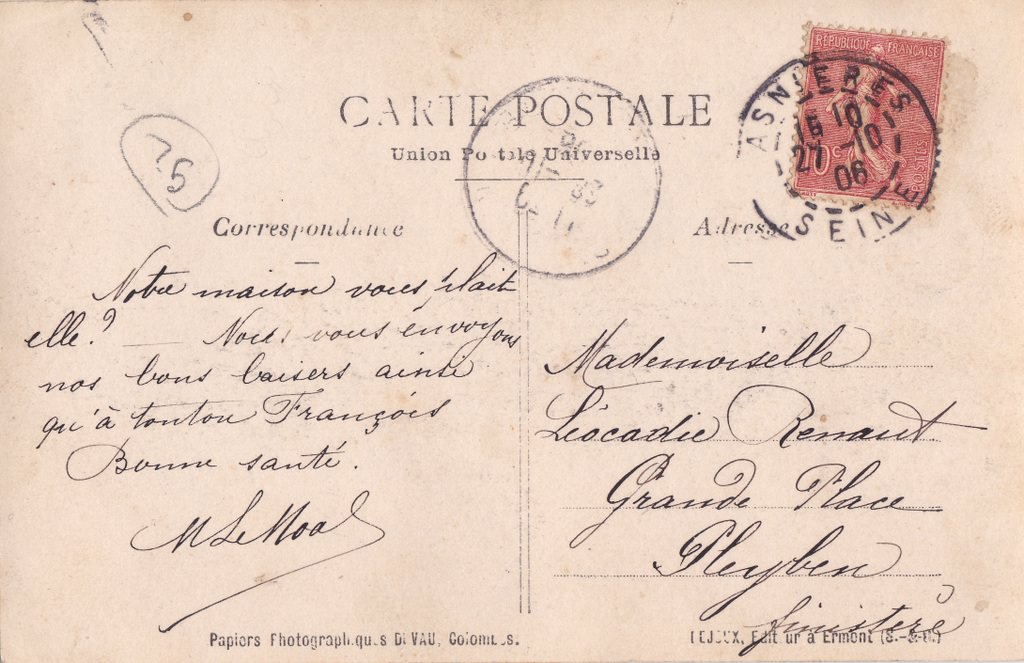 RÉPUBLIQUE FRANÇAISE
10c
POSTES
ASNIERES
10
27 -10
06
SEINE
75
CARTE POSTALE
Union Postale Universelle
Correspondance
Adresse
Notre maison vous plait
elle? — Nous vous envoyons
nos bons baisers ainsi
qu'à tonton François
Bonne santé.
M Le Moal
Mademoiselle
Léocadie Renaut
Grande Place
Pleyben
finistère
Papiers Photographiques DEVAU, Colombes.
LEJEUX, Editeur à Ermont (S.-&-O.)